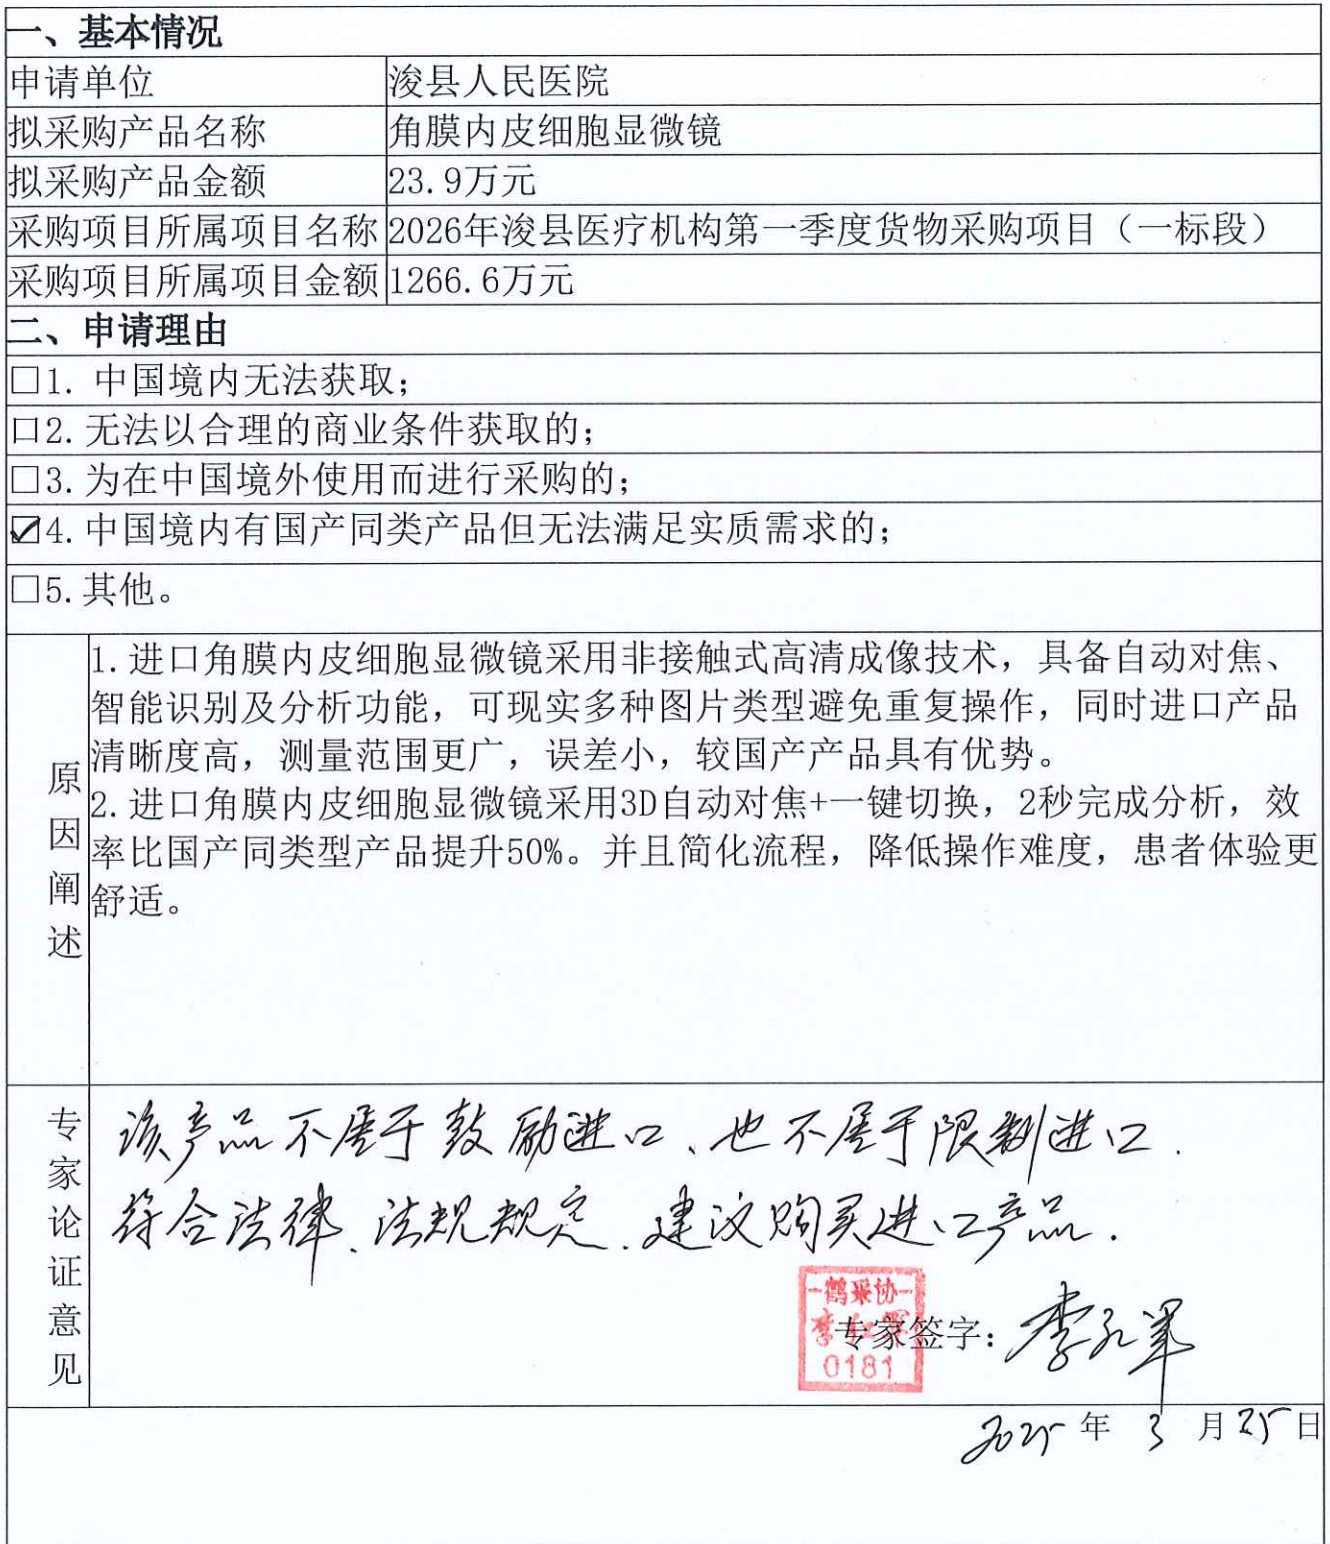 一、基本情况
申请单位 浚县人民医院
拟采购产品名称 角膜内皮细胞显微镜
拟采购产品金额 23.9万元
采购项目所属项目名称 2026年浚县医疗机构第一季度货物采购项目（一标段）
采购项目所属项目金额 1266.6万元
二、申请理由
□1. 中国境内无法获取；
口2. 无法以合理的商业条件获取的；
□3. 为在中国境外使用而进行采购的；
☑4. 中国境内有国产同类产品但无法满足实质需求的；
□5. 其他。
原因阐述
1. 进口角膜内皮细胞显微镜采用非接触式高清成像技术，具备自动对焦、
智能识别及分析功能，可现实多种图片类型避免重复操作，同时进口产品
清晰度高，测量范围更广，误差小，较国产产品具有优势。
2. 进口角膜内皮细胞显微镜采用3D自动对焦+一键切换，2秒完成分析，效
率比国产同类型产品提升50%。并且简化流程，降低操作难度，患者体验更
舒适。
专家论证意见
该产品不属于鼓励进口、也不属于限制进口.
符合法律、法规规定、建议购买进口产品.
鹤采协
0181
专家签字：李红军
2025年3月25日